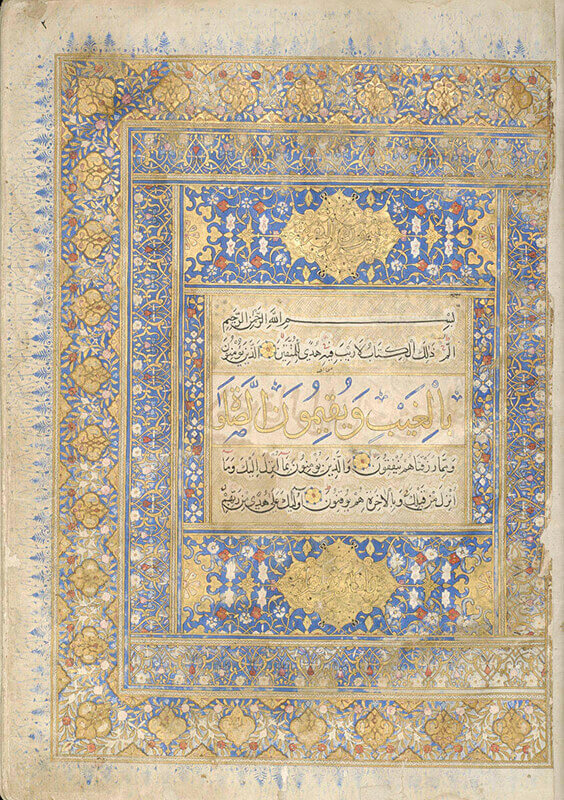 بسم الله الرحمن الرحيم
الم ذلك الكتاب لا ريب فيه هدى للمتقين الذين يؤمنون
بِالْغَيْبِ وَيُقِيمُونَ الصَّلٰوةَ
ومما رزقناهم ينفقون والذين يؤمنون بما انزل اليك وما
انزل من قبلك وبالاخرة هم يوقنون اولئك على هدى من ربهم